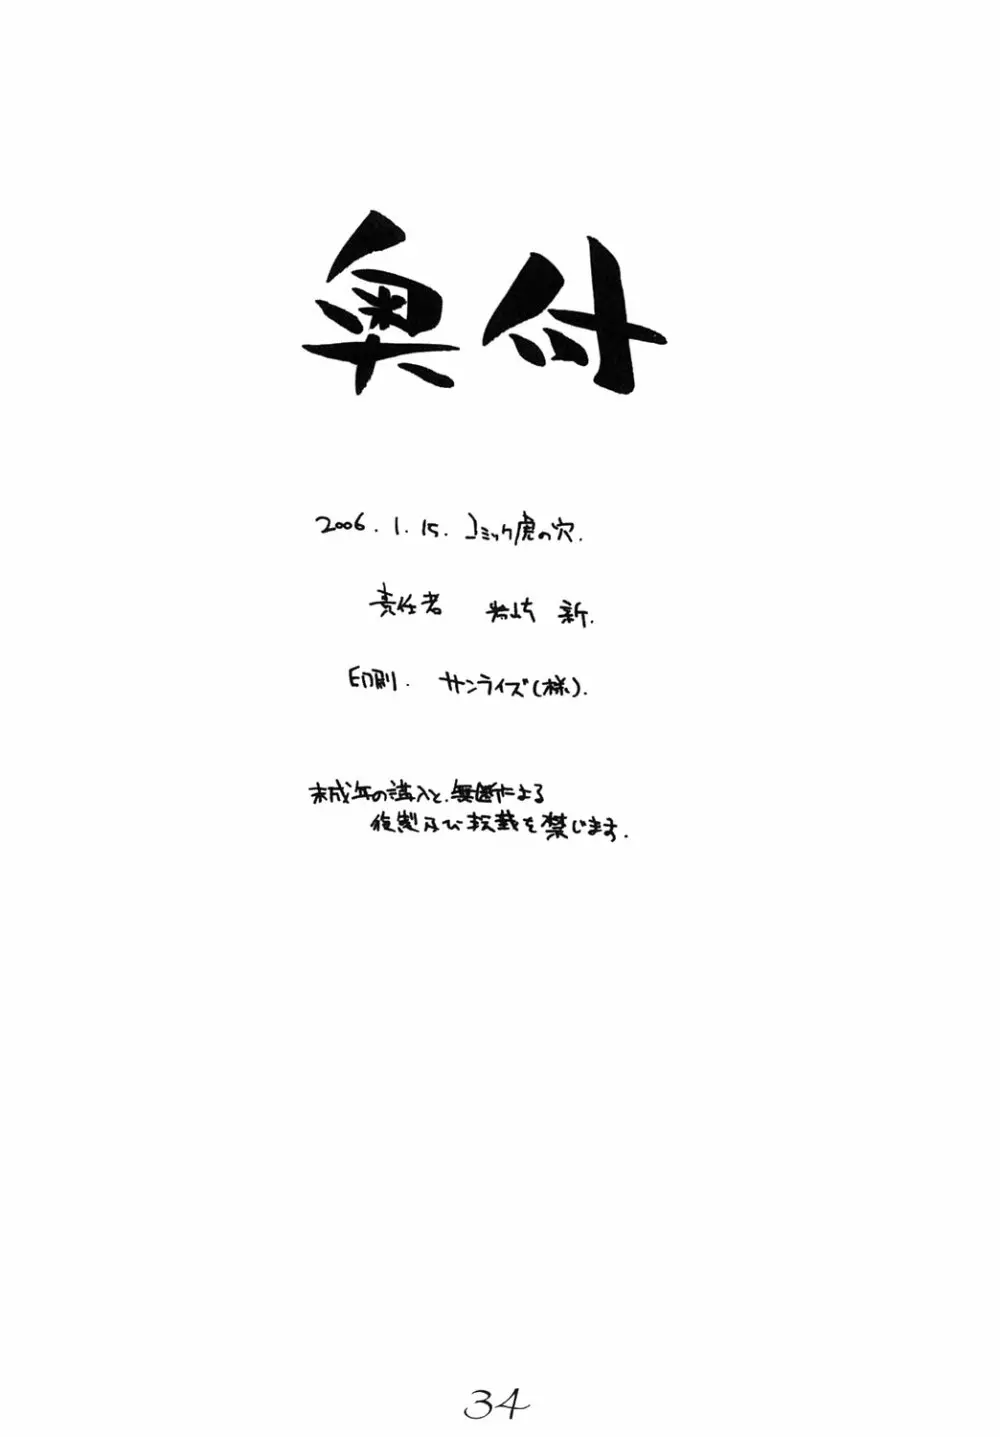 奥付
2006.1.15.コミック虎の穴.
責任者 岩崎 新.
印刷. サンライズ(様).
未成年の購入と、無断による
複製及び転載を禁じます.
34